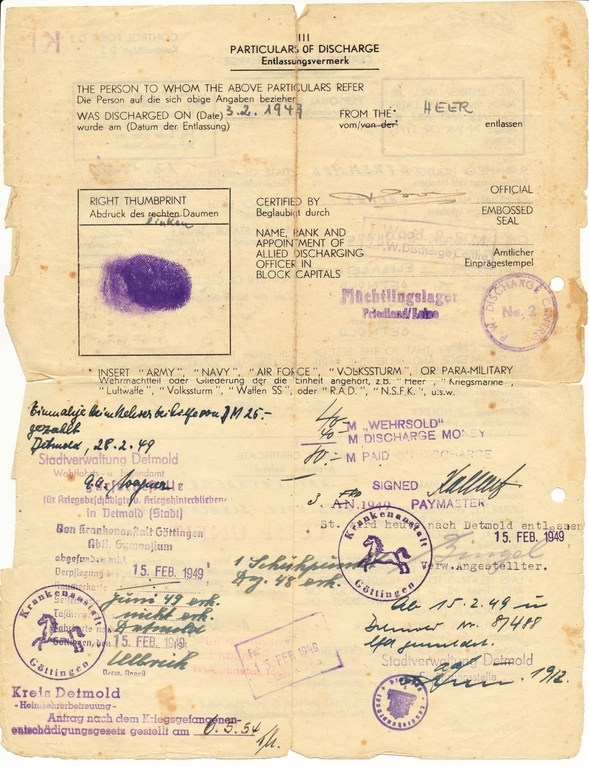 III
PARTICULARS OF DISCHARGE
Entlassungsvermerk
THE PERSON TO WHOM THE ABOVE PARTICULARS REFER
Die Person auf die sich obige Angaben beziehen
WAS DISCHARGED ON (Date) 3.2.1949 FROM THE: HEER
wurde am (Datum der Entlassung) vom/von der entlassen
RIGHT THUMBPRINT
Abdruck des rechten Daumen
linken
CERTIFIED BY
Beglaubigt durch
OFFICIAL
EMBOSSED
SEAL
NAME, RANK AND
APPOINTMENT OF
ALLIED DISCHARGING
OFFICER IN
BLOCK CAPITALS
Amtlicher
Einprägestempel
P.W. Discharge C
Flüchtlingslager
Friedland/Leine
P.W. DISCHARGE CENTRE
No. 2
INSERT "ARMY", "NAVY", "AIR FORCE", "VOLKSSTURM", OR PARA-MILITARY
Wehrmachtteil oder Gliederung der die Einheit angehört, z.B. "Heer", "Kriegsmarine",
"Luftwaffe", "Volkssturm", "Waffen SS" oder "R.A.D.", "N.S.F.K.", u.s.w.
Einmalige Heimkehrerbeihilfe von DM 25.-
gezahlt
Detmold, 28.2.49
Stadtverwaltung Detmold
40 M "WEHRSOLD"
40 M DISCHARGE MONEY
80 M PAID ON DISCHARGE
SIGNED
3. FEB 1949 PAYMASTER
für Kriegsbeschädigte u. Kriegshinterbliebene
in Detmold (Stadt)
Von Krankenanstalt Göttingen
Abtl. Gymnasium
abgefunden mit
Verpflegung bis 15. FEB. 1949
St. wird heute nach Detmold entlassen
15. FEB. 1949
Verw.Angestellter.
Krankenanstalt
Göttingen
Juni 49 erh.
nicht erh.
Detmold
Göttingen, den 15. FEB. 1949
Krankenanstalt
Göttingen
15. FEB. 1949
Ab 15.2.49 in
Detmold Nr. 87488
gemeldet.
Stadtverwaltung Detmold
19/2.
Kreis Detmold
-Heimkehrerbetreuung-
Antrag nach dem Kriegsgefangenen-
entschädigungsgesetz gestellt am 6.5.54